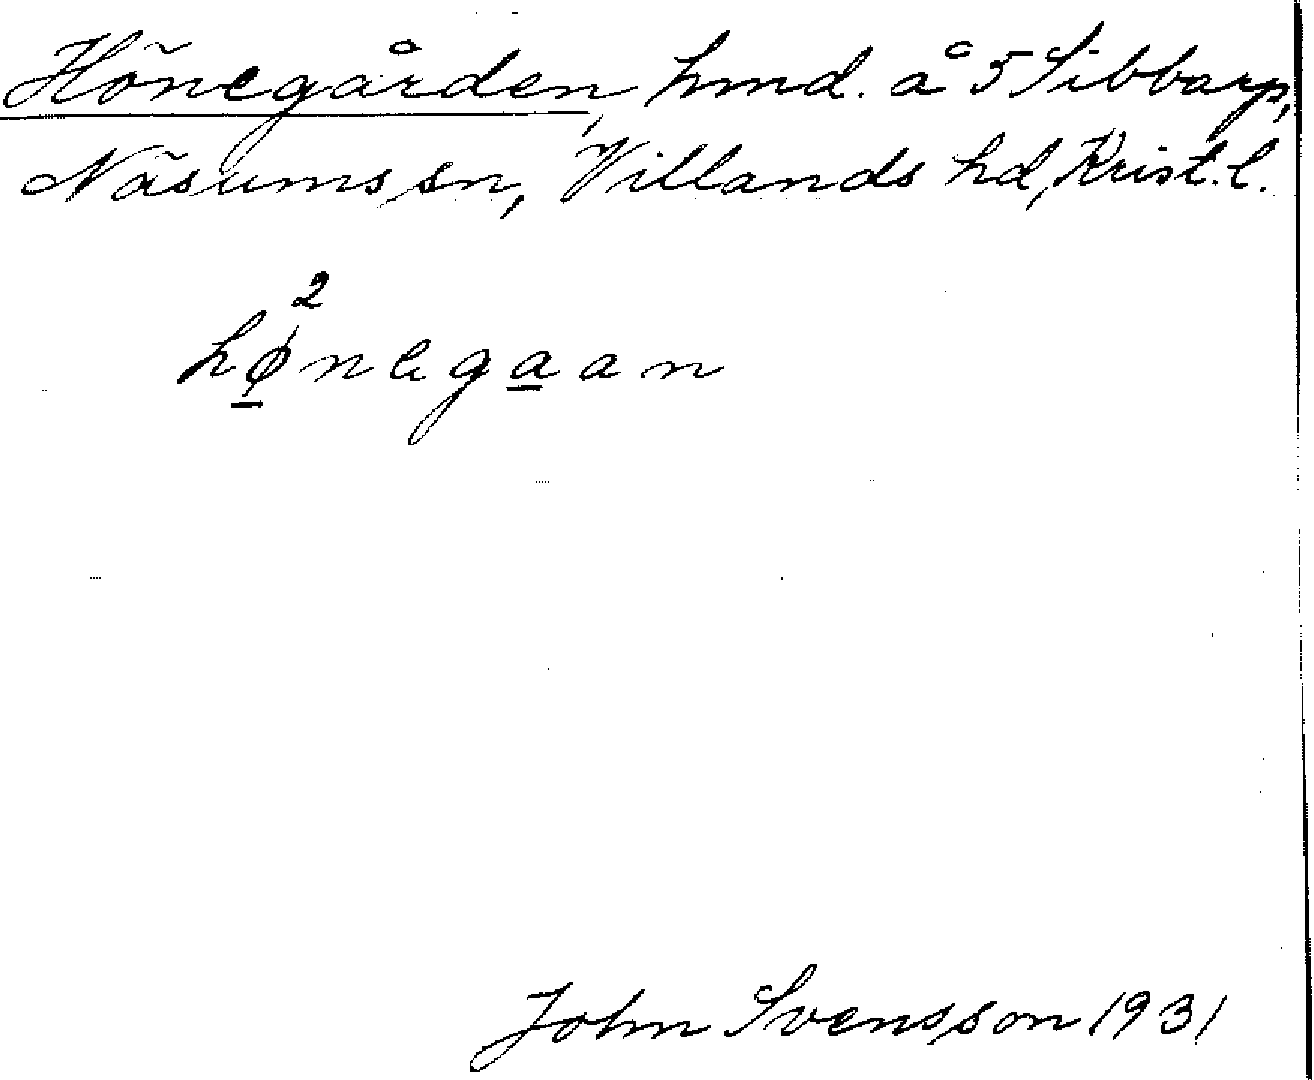 Hönegården, hmd. å 5 Sibbarp,
Näsums sn, Villands hd, Krist. l.
2
hø̲nega̲an
John Svensson 1931